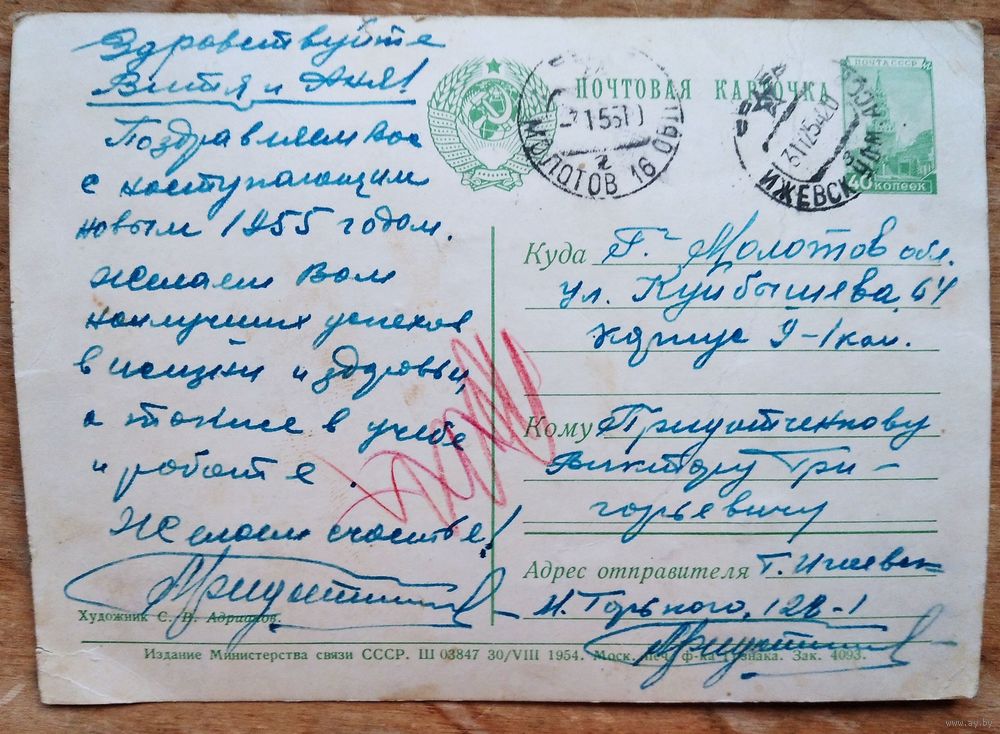 Здравствуйте
Витя и Аня!
Поздравляем Вас
с наступающим
новым 1955 годом.
Желаем Вам
наилучших успехов
в жизни и здоровья,
а также в учебе
и работе.
Желаем счастье!
Художник С. В. Адрианов.
ПОЧТОВАЯ КАРТОЧКА
МОЛОТОВ 16
ИЖЕВСК УДМ. АССР
ПОЧТА СССР
40 КОПЕЕК
Куда Г. Молотов обл.
ул. Куйбышева, 64
корпус 9-1 ком.
Кому
Виктору Гри-
горьевичу
Адрес отправителя Г. Ижевск
М. Горького, 122-1
Издание Министерства связи СССР. Ш 03847 30/VIII 1954. Моск. печ. ф-ка Гознака. Зак. 4093.
www.ay.by